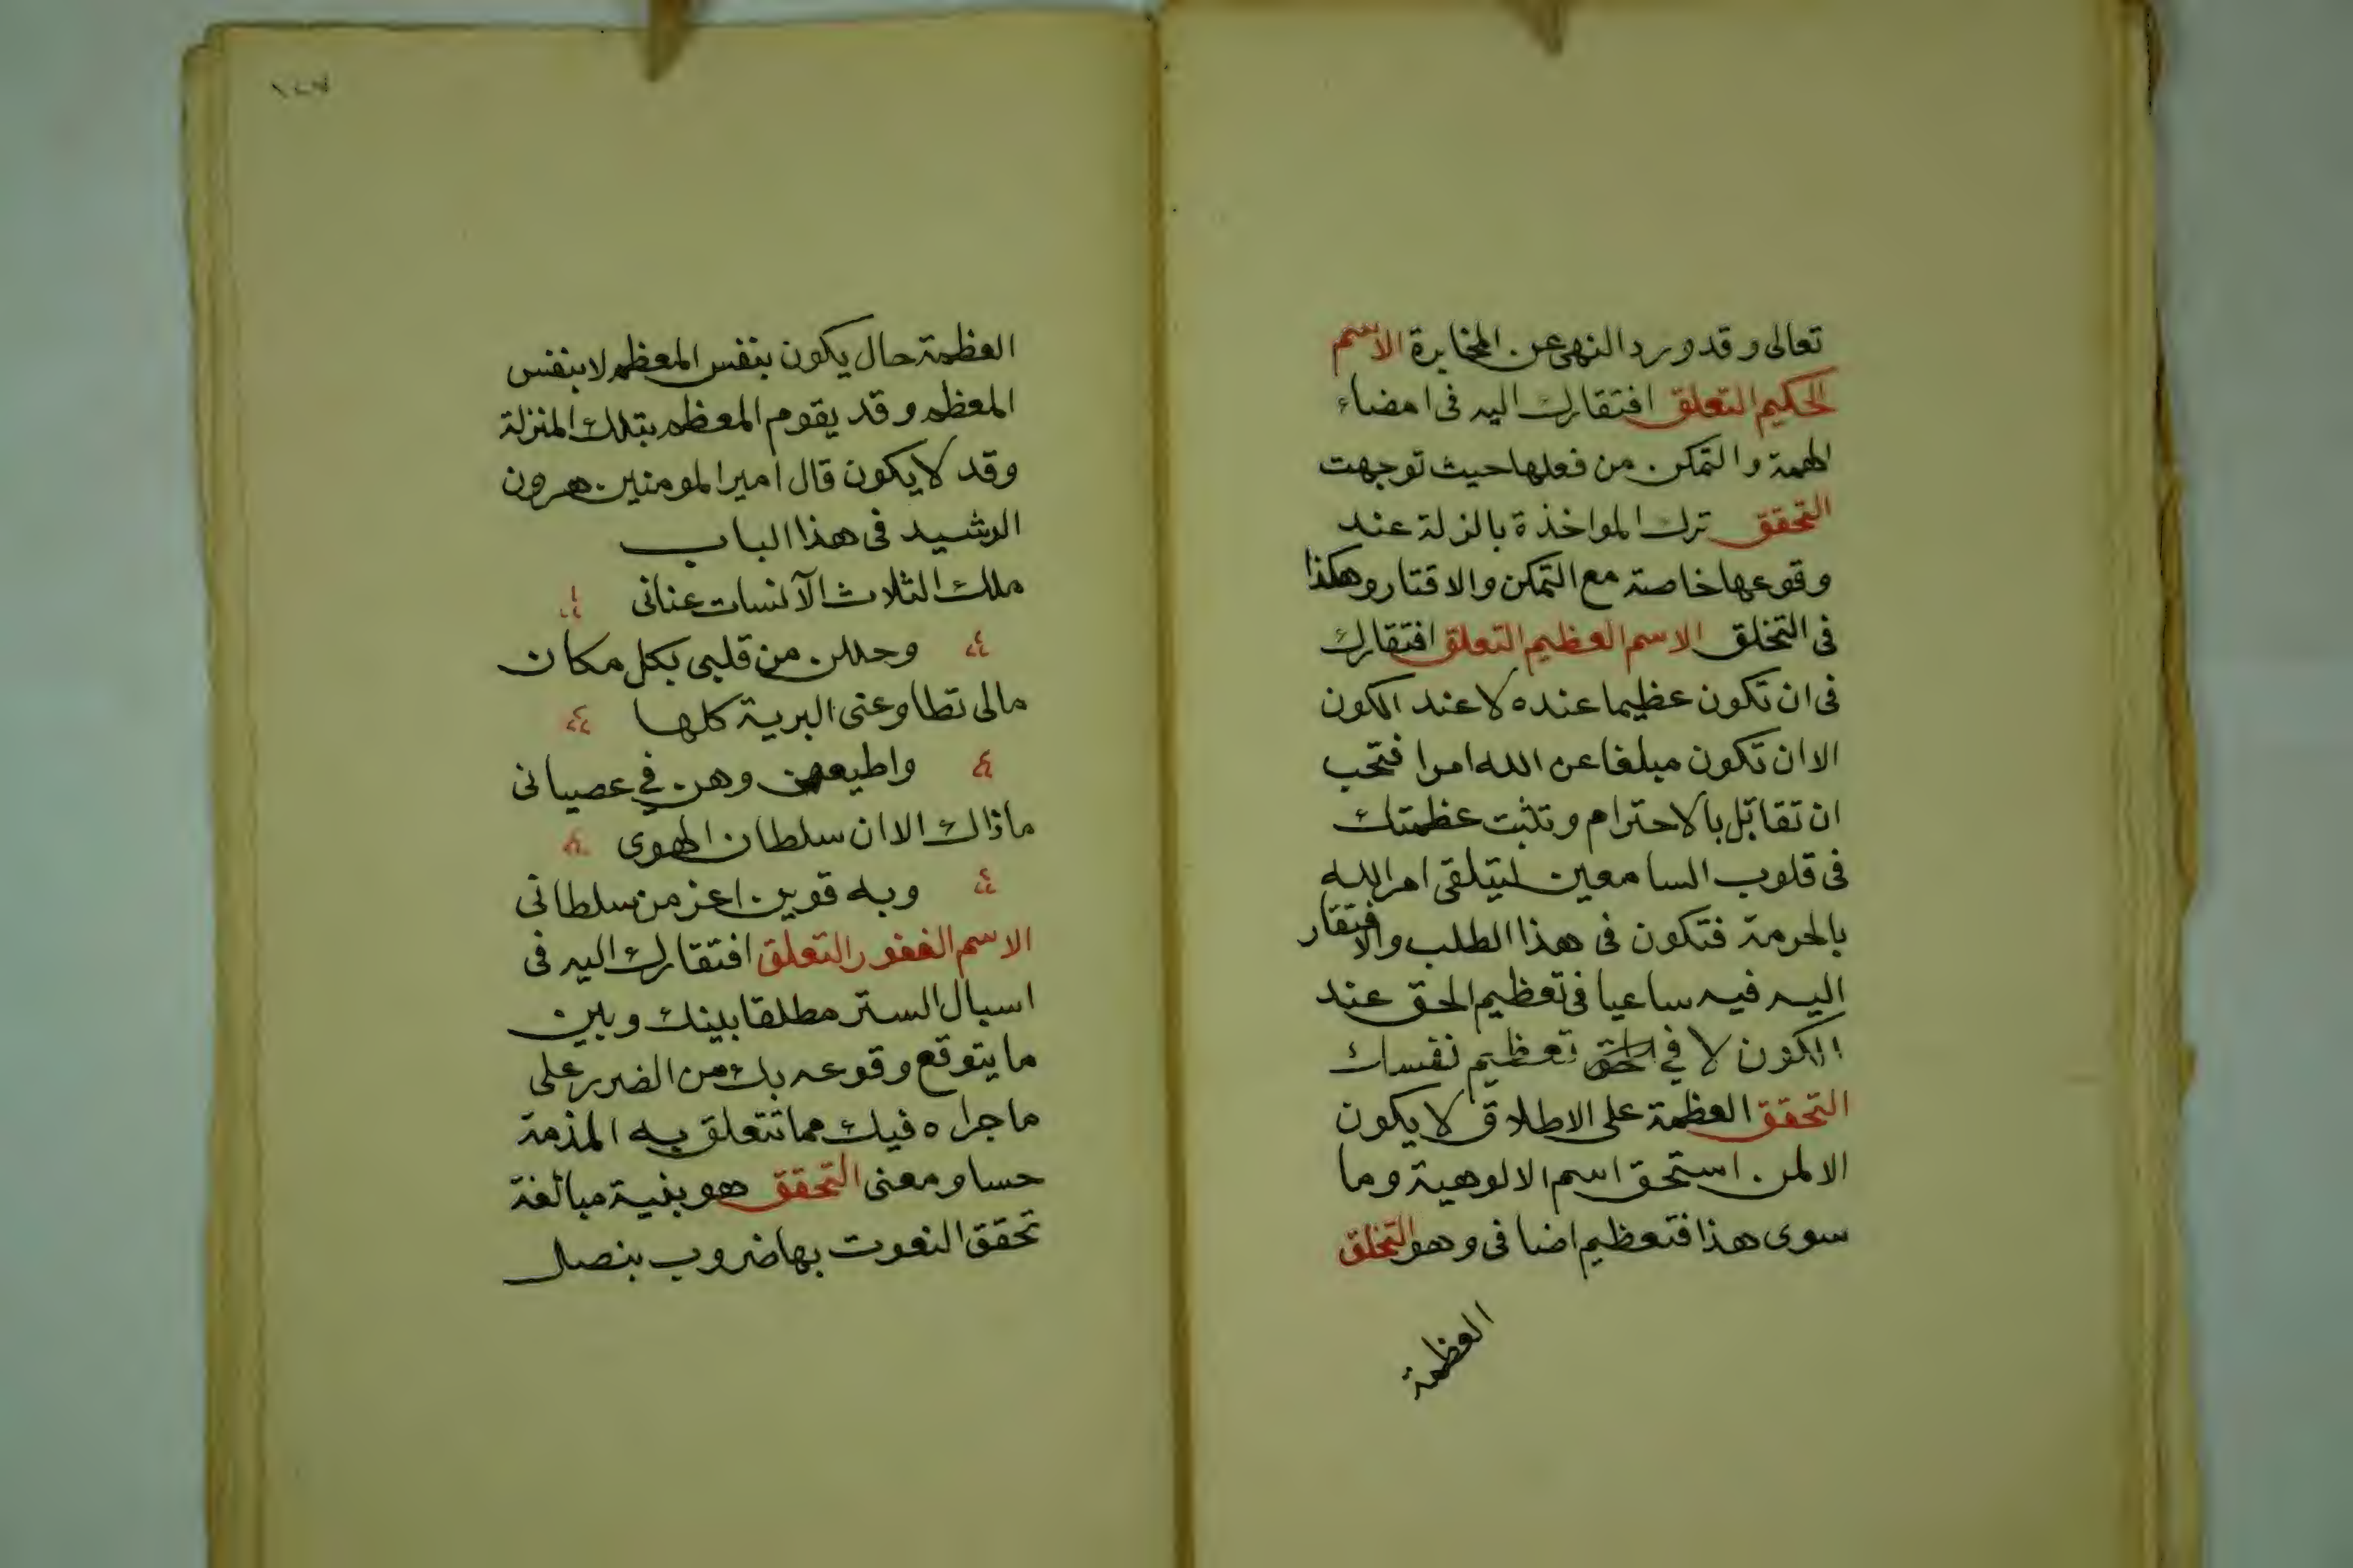 تعالى وقد ورد النهى عن المخابرة الاسم
الحكيم التعلق افتقارك اليه فى امضاء
الهمة والتمكن من فعلها حيث توجهت
التحقق ترك المواخذة بالزلة عند
وقوعها خاصة مع التمكن والاقتار وهكذا
فى التخلق الاسم العظيم التعلق افتقارك
فى ان تكون عظيما عنده لا عند الكون
الا ان تكون مبلغا عن الله امرا فتحب
ان تقابل بالاحترام وتثبت عظمتك
فى قلوب السامعين ليتلقى امر الله
بالحرمة فتكون فى هذا الطلب والافتقار
اليه فيه ساعيا فى تعظيم الحق عند
الكون لا في تعظيم نفسك
التحقق العظمة على الاطلاق لا يكون
الا لمن استحق اسم الالوهية وما
سوى هذا فتعظيم اضافى وهو التخلق
العظمة
العظمة حال يكون بنفس المعظم لا بنفس
المعظم وقد يقوم المعظم بتلك المنزلة
وقد لا يكون قال امير المومنين هرون
الرشيد فى هذا الباب
ملك الثلاث الآنسات عنانى
وحللن من قلبى بكل مكان
مالى تطاوعنى البرية كلها
واطيعهن وهن في عصيانى
ماذاك الا ان سلطان الهوى
وبه قوين اعز من سلطانى
الاسم الغفور التعلق افتقارك اليه فى
اسبال الستر مطلقا بينك وبين
ما يتوقع وقوعه بك من الضرر على
ما جراه فيك مما تتعلق به المذمة
حسا ومعنى التحقق هو بنية مبالغة
تحقق النعوت بها ضروب بنصل